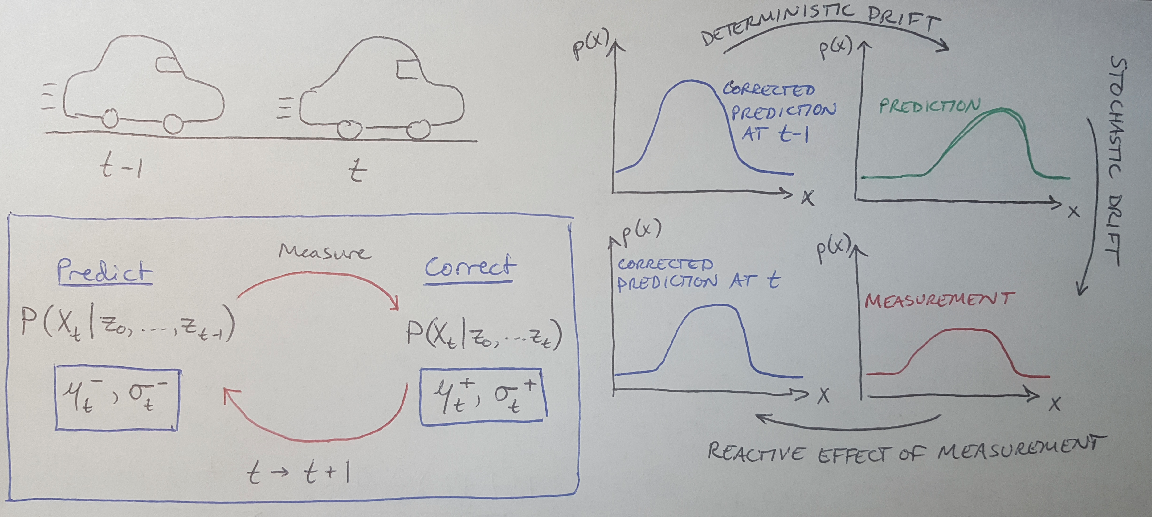 t-1
t
Predict
P(X_t|z_0,...,z_{t-1})
μ_t^-, σ_t^-
Measure
Correct
P(X_t|z_0,...z_t)
μ_t^+, σ_t^+
t → t+1
DETERMINISTIC DRIFT
p(x)
CORRECTED
PREDICTION
AT t-1
x
p(x)
PREDICTION
x
STOCHASTIC DRIFT
p(x)
CORRECTED
PREDICTION AT t
x
p(x)
MEASUREMENT
x
REACTIVE EFFECT OF MEASUREMENT